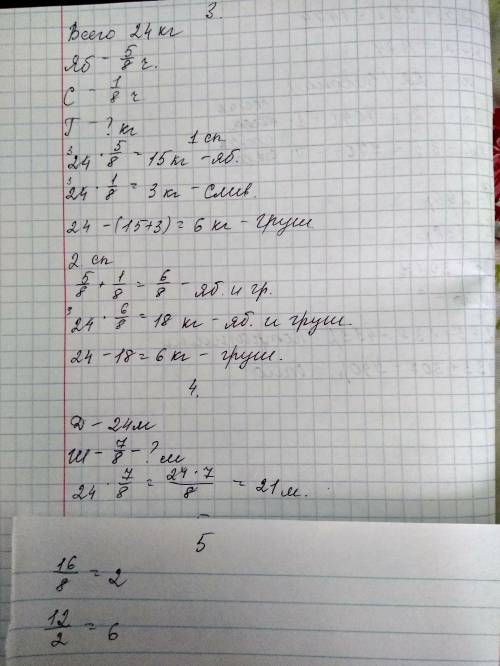 3.
Всего 24 кг
Яб - 5/8 ч.
С - 1/8 ч
Г - ? кг
1 сп
24 · 5/8 = 15 кг - яб.
24 · 1/8 = 3 кг - слив.
24 - (15+3) = 6 кг - груш.
2 сп
5/8 + 1/8 = 6/8 - яб. и гр.
24 · 6/8 = 18 кг - яб. и груш.
24 - 18 = 6 кг - груш.
4.
Д - 24 м
Ш - 7/8 - ? м
24 · 7/8 = 24 · 7/8 = 21 м.
5
16/8 = 2
12/2 = 6